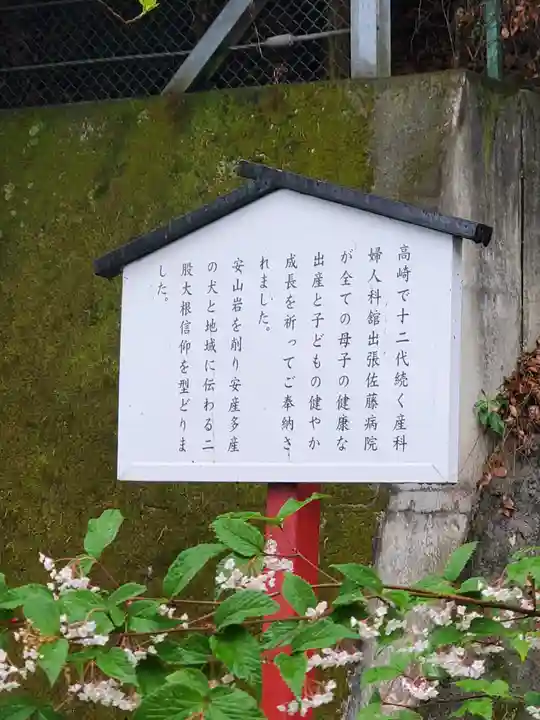 高崎で十二代続く産科
婦人科舘出張佐藤病院
が全ての母子の健康な
出産と子どもの健やか
成長を祈ってご奉納さ
れました。
安山岩を削り安産多産
の犬と地域に伝わる二
股大根信仰を型どりま
した。